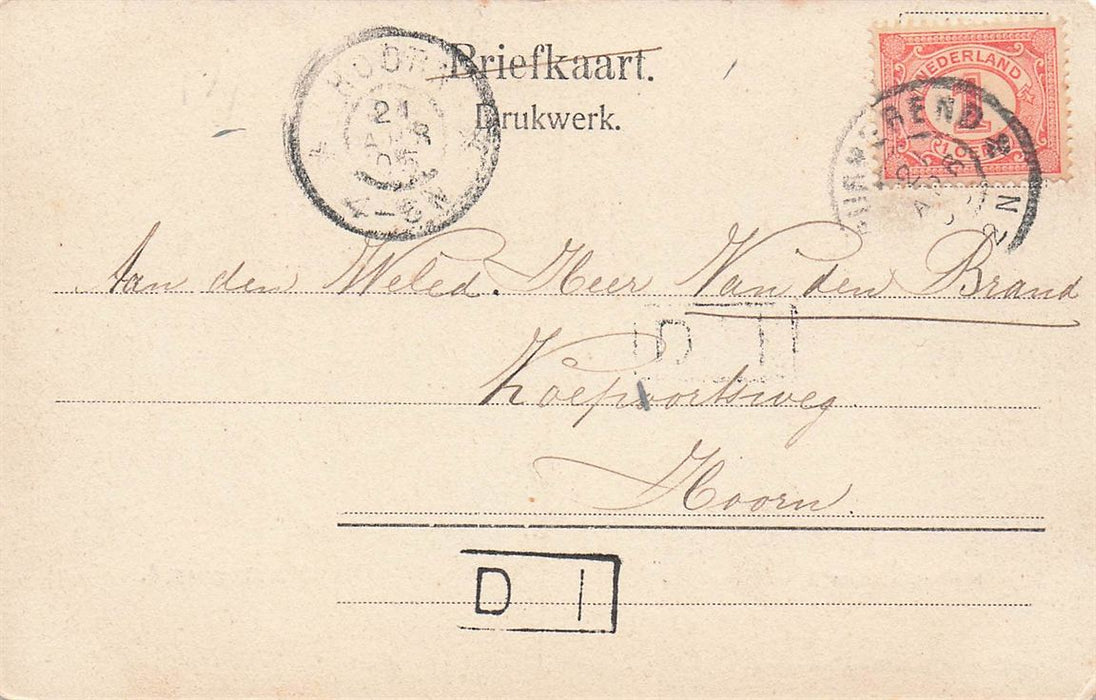 Briefkaart.
Drukwerk.
HOORN
21
AUG
05
4-5N
NEDERLAND
1
PURMEREND
2 N
Aan den Weled. Heer Van den Brand
Koepoortsweg
Hoorn.
D I
D I